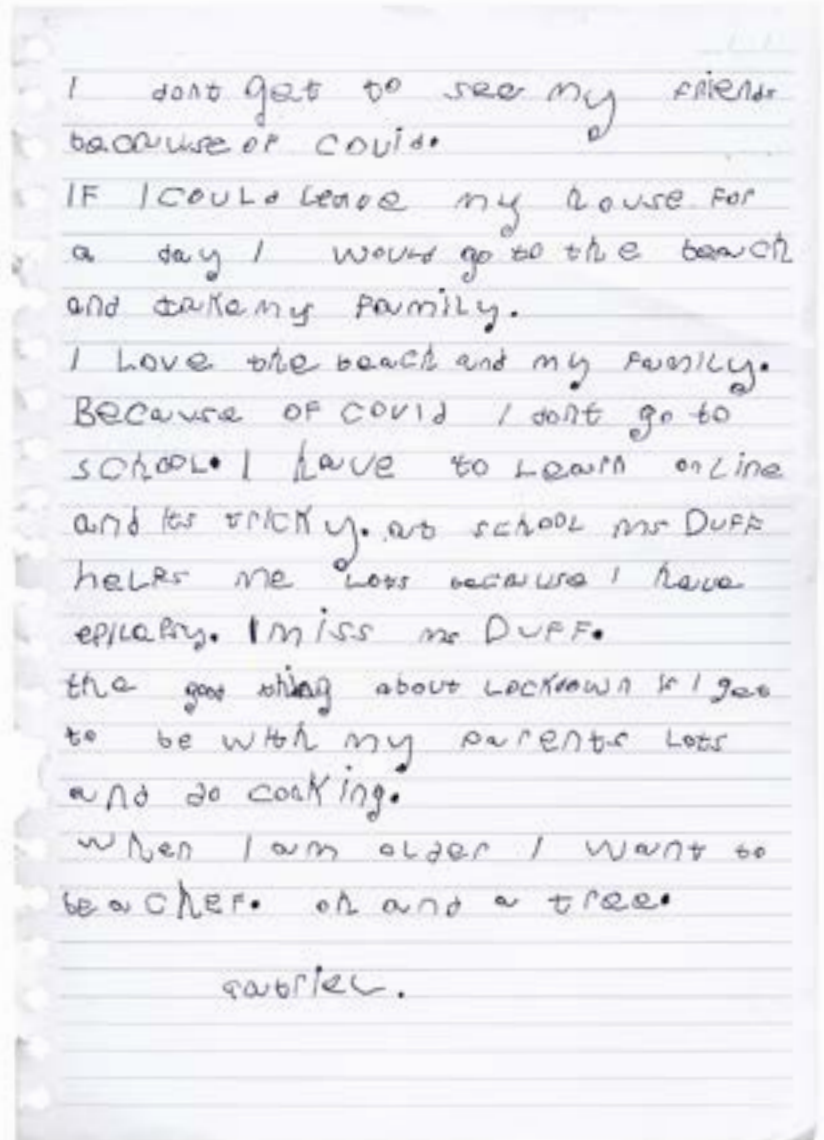 I dont get to see my friends
because of covid.
IF I COULd Leave my house For
a day I would go to the beach
and take my family.
I Love the beach and my family.
Because OF COVID I dont go to
SCHOOL. I have to Learn onLine
and its tricky. at school mr DUFF
heLPs me Lots because I have
epiLaPsy. I miss mr DUFF.
the good thing about Lockdown is I get
to be with my parents Lots
and do cooking.
when I am oLder I want to
be a cher. oh and a tree.
gabrieL.